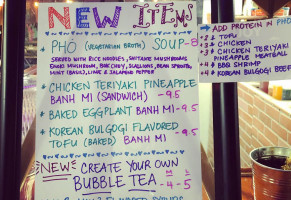 NEW ITEMS
* PHO (VEGETARIAN BROTH) SOUP-8
SERVED WITH RICE NOODLES, SHIITAKE MUSHROOMS
ENOKI MUSHROOM, BOK CHOY, SCALLIONS, BEAN SPROUTS,
MINT (BASIL), LIME & JALAPENO PEPPER
* CHICKEN TERIYAKI PINEAPPLE
BANH MI (SANDWICH) -9.5
* BAKED EGGPLANT BANH MI -9.5
* KOREAN BULGOGI FLAVORED
TOFU (BAKED) BANH MI -9.5
NEWS CREATE YOUR OWN
BUBBLE TEA -4-5
ADD PROTEIN IN PHO
+2 $ TOFU
+3 $ CHICKEN
+3 $ CHICKEN TERIYAKI
PINEAPPLE MEATBALL
+4 $ BBQ SHRIMP
+4 $ KOREAN BULGOGI BEEF